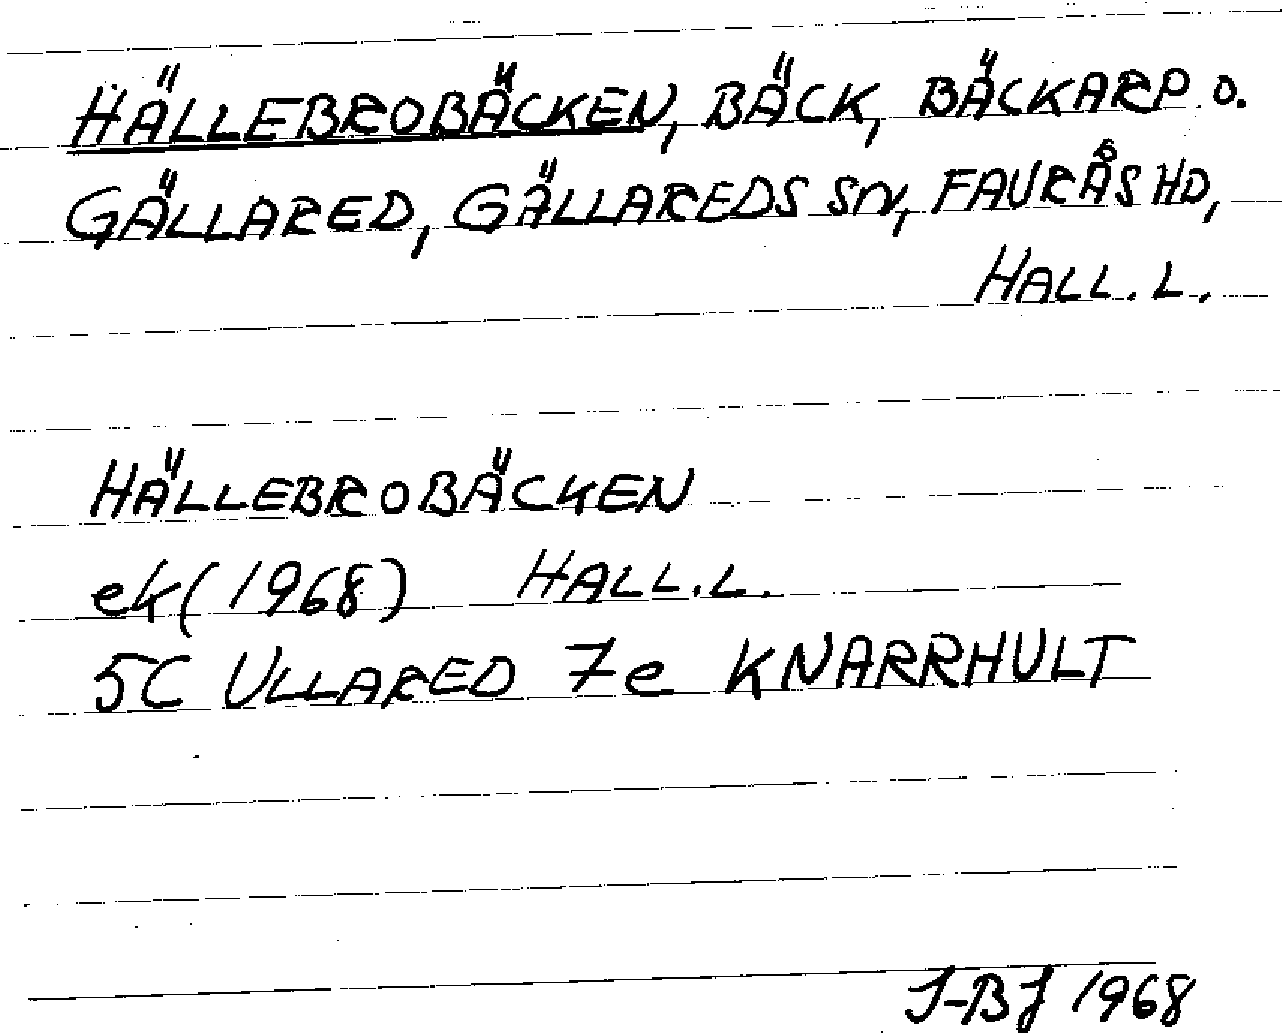 HÄLLEBROBÄCKEN, BÄCK, BÄCKARP O.
GÄLLARED, GÄLLAREDS SN, FAURÅS HD,
HALL. L.
HÄLLEBROBÄCKEN
ek (1968) HALL.L.
5C ULLARED 7e KNARRHULT
J-BJ 1968